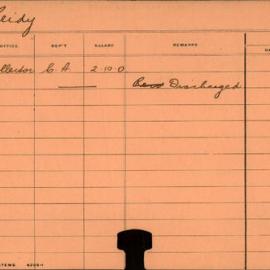 Leidy
OFFICE DEP'T SALARY REMARKS
llector C. A. 2.10.0
Discharged